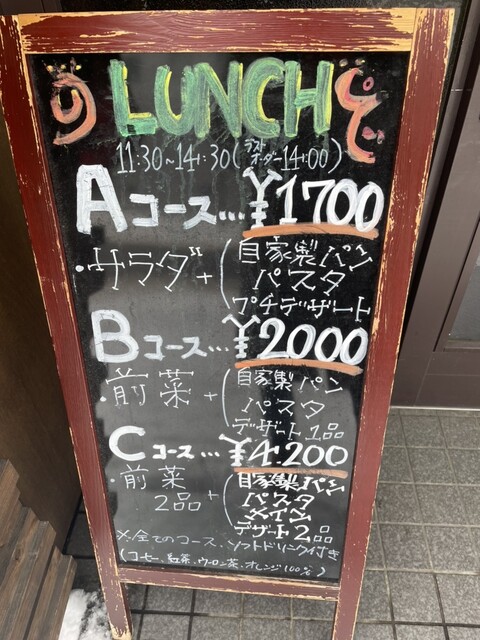 LUNCH
11:30~14:30(ラストオーダー14:00)
Aコース…¥1700
・サラダ+(自家製パン
パスタ
プチデザート
Bコース…¥2000
・前菜+(自家製パン
パスタ
デザート1品
Cコース…¥4.200
・前菜2品+(自家製パン
パスタ
メイン
デザート2品
※全てのコース、ソフトドリンク付き
(コーヒー、紅茶、ウーロン茶、オレンジ100%)